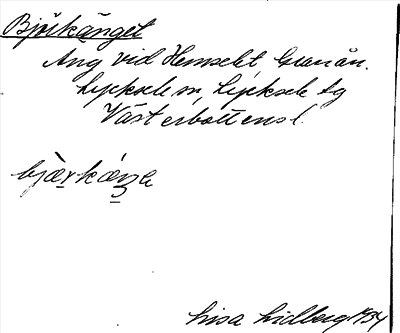 Björkänget
Äng vid Hemsele, Granån.
Lycksele sn, Lycksele tg
Västerbottens l.
bjærkæŋe
Lisa Lidberg 1934